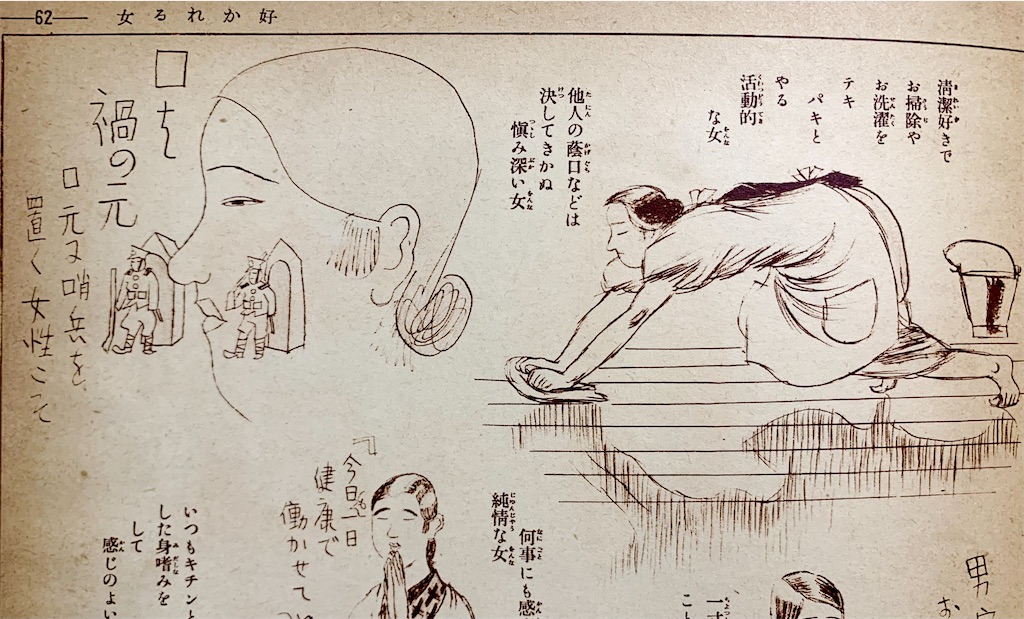 好かれる女
62
清潔好きで
お掃除や
お洗濯を
テキ
パキと
やる
活動的
な女
他人の蔭口などは
決してきかぬ
愼み深い女
口は
禍の元
口元に哨兵を
置く女性こそ
男
お
一寸
こ
何事にも感
純情な女
『今日も一日
健康で
働かせて
いつもキチンと
した身嗜みを
して
感じのよい